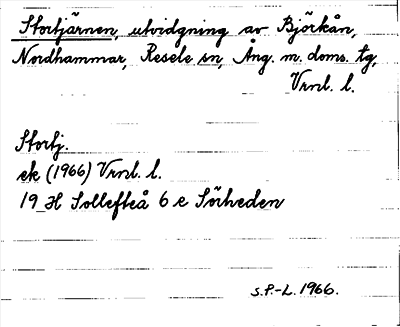 Stortjärnen, utvidgning av Björkån,
Nordhammar, Resele sn, Ång. m. doms. tg,
Vrnl. l.
Stortj.
ek (1966) Vrnl. l.
19 H Sollefteå 6 e Sörheden
S.P.-L. 1966.